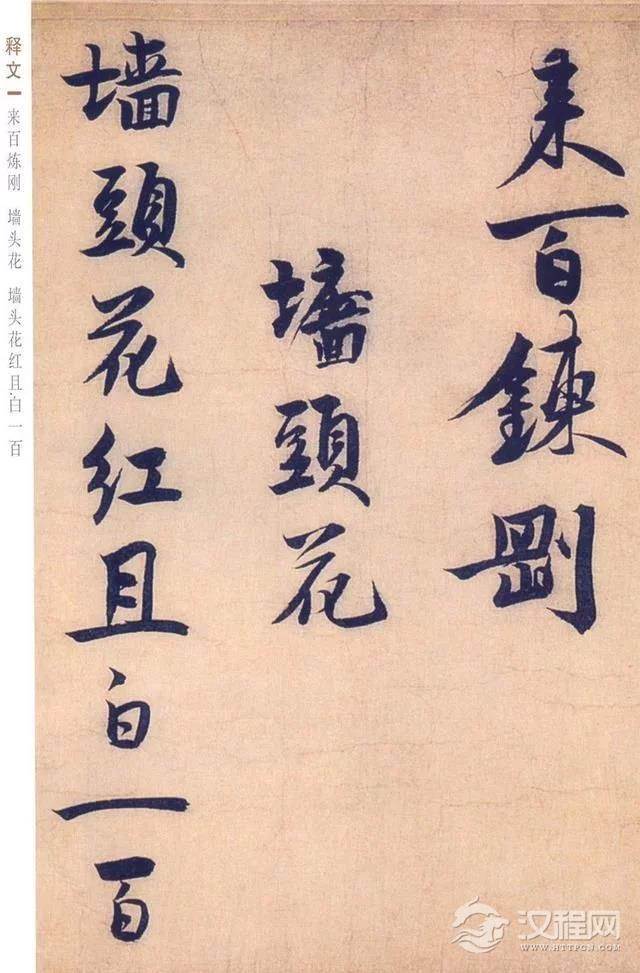 来百鍊剛
墻頭花
墙頭花红且白一百
释文
来百炼刚 墙头花 墙头花红且白一百
汉程网
WWW.HTTPCN.COM